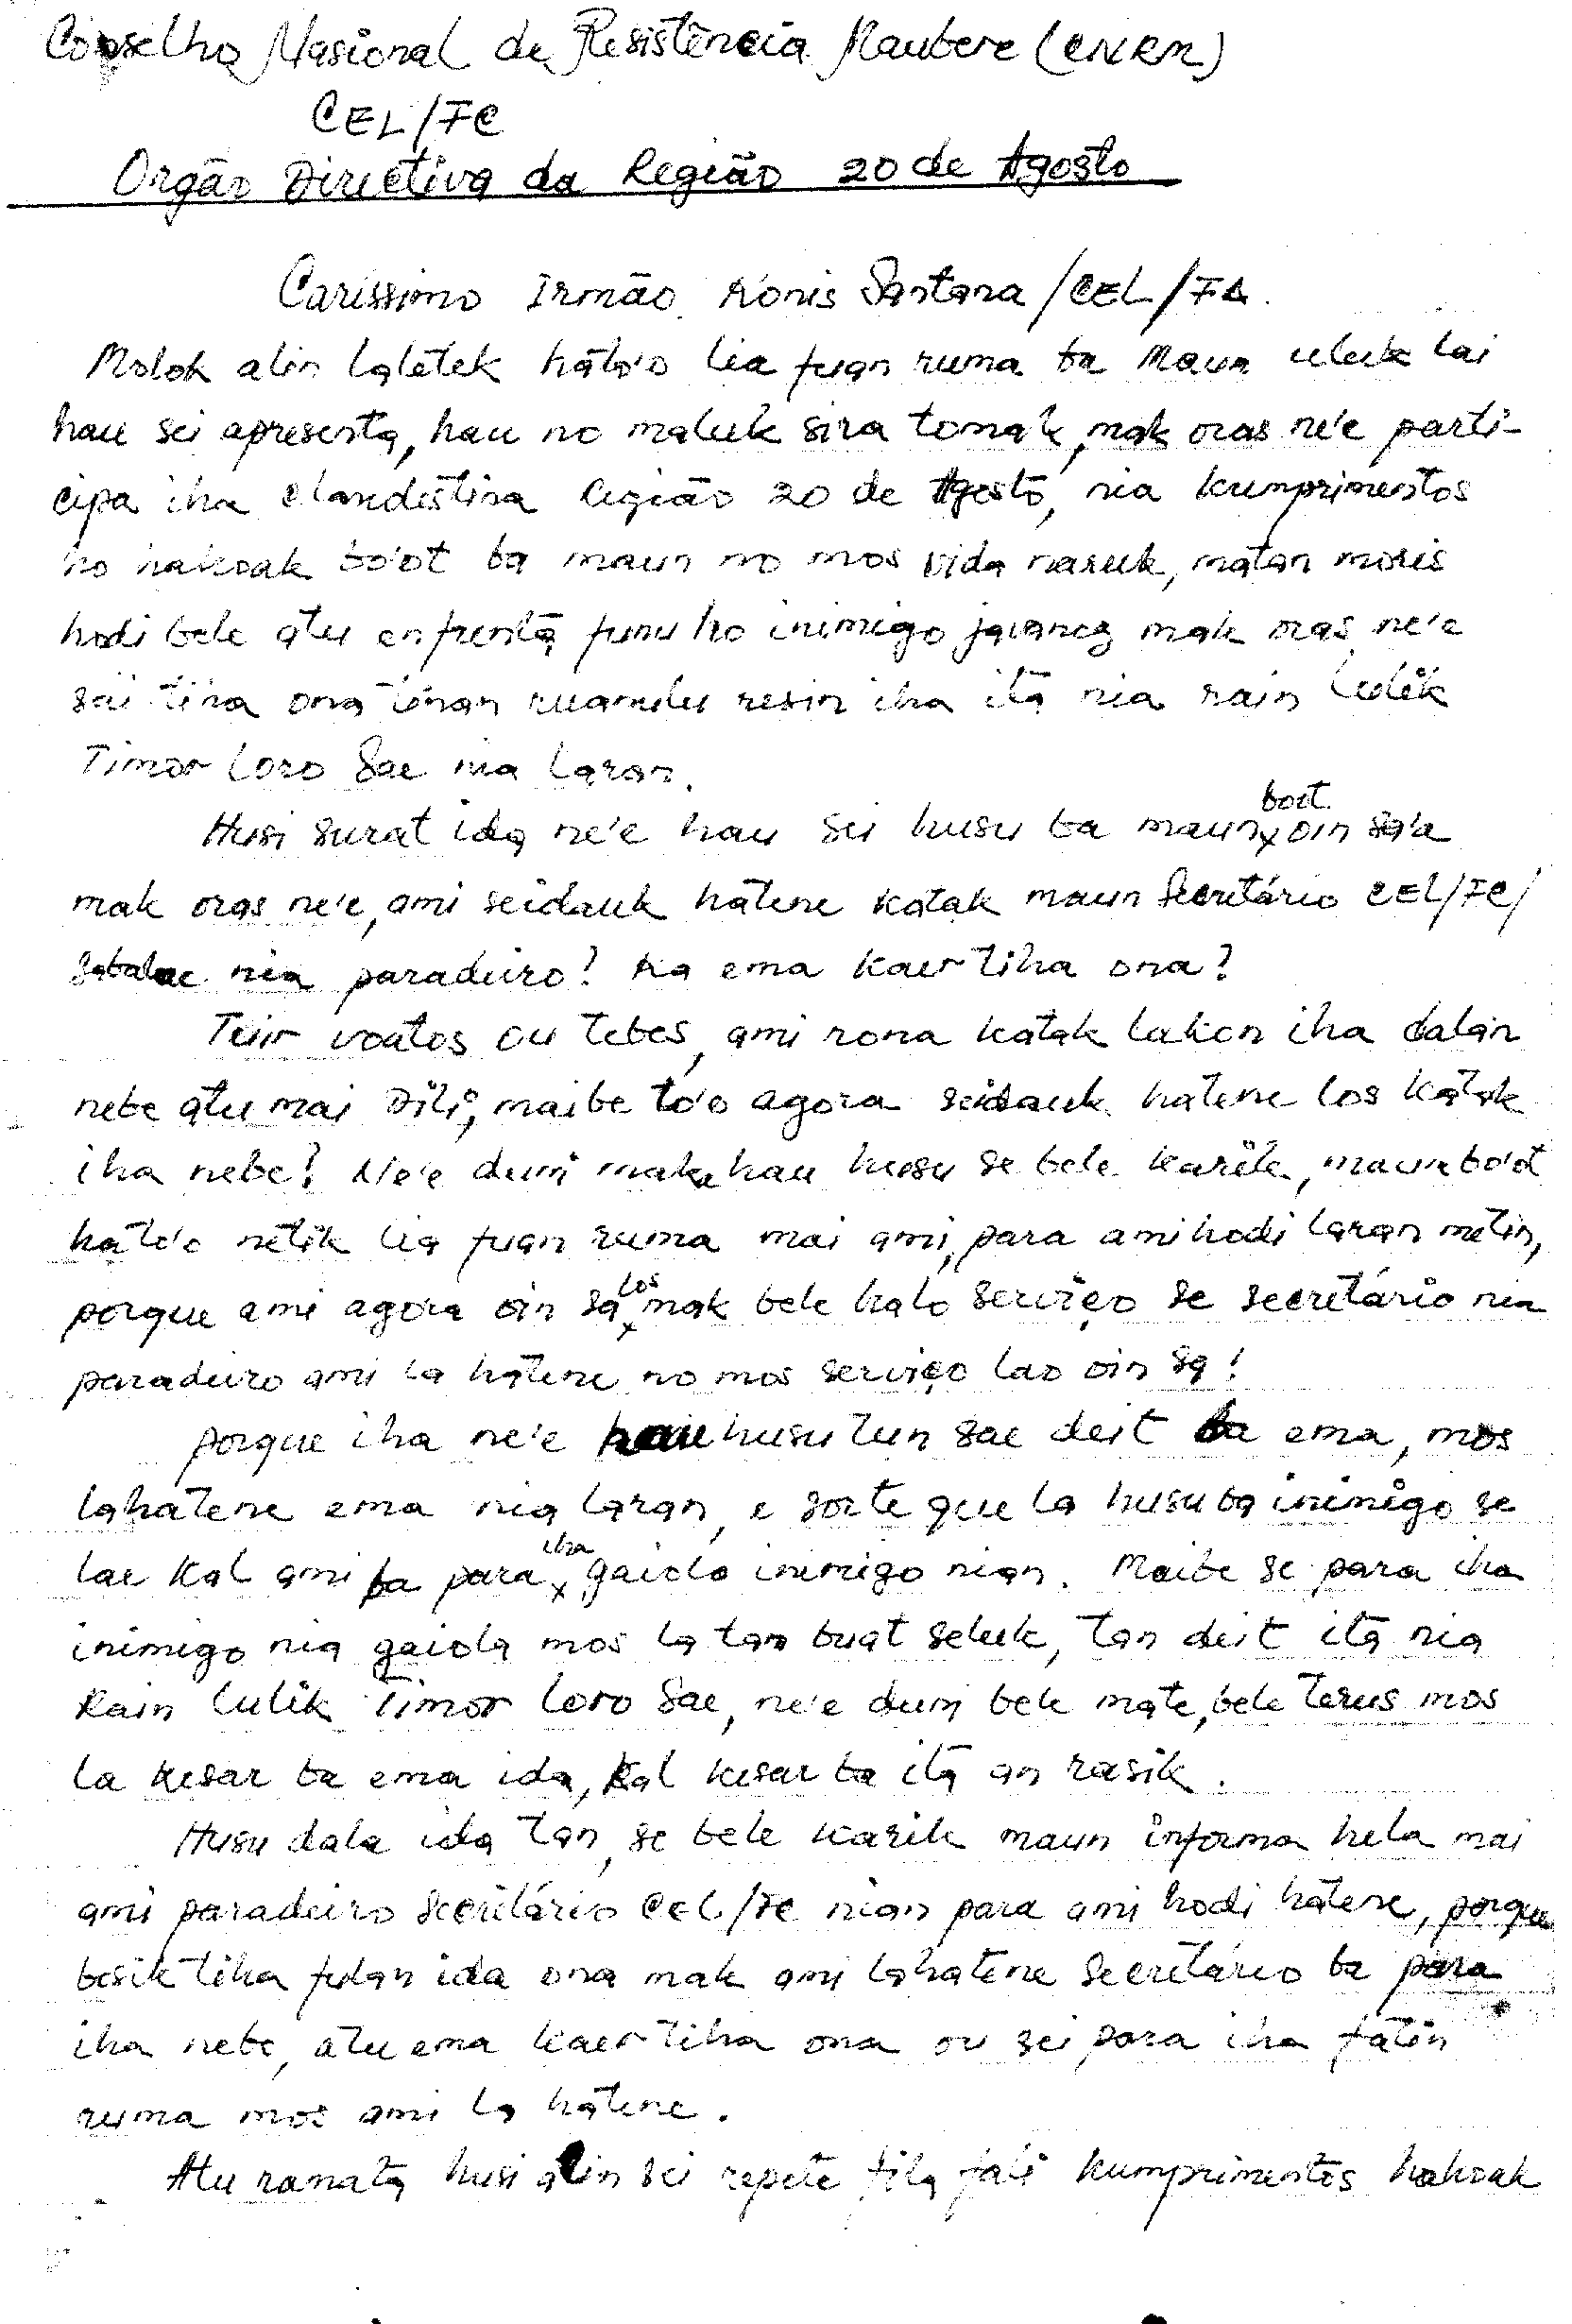 Conselho Nasional de Resistência Maubere (CNRM)
CEL/FC
Orgão Directiva da Região 20 de Agosto
Caríssimo Irmão Konis Santana/CEL/FA.
Molok alin Laletek hato'o lia fuan ruma ba Maun uluk lai
hau sei apresenta, hau no maluk sira tomak, mak oras ne'e parti-
cipa iha clandestina Região 20 de Agosto, nia kumprimentos
ho hakoak bo'ot ba maun no mos vida naruk, matan moris
hodi bele atu enfrenta funu ho inimigo javanes mak oras ne'e
sai tiha ona tinan ruanulu resin iha ita nia rain lulik
Timor Loro Sae nia laran.
Husi surat ida ne'e hau sei husu ba maun boot oin sa'a
mak oras ne'e, ami seidauk hatene katak maun Secretário CEL/FC/
Sabalae nia paradeiro? Ka ema kaer tiha ona?
Tuir voatos ou tebes, ami rona katak lakon iha dalan
nebe atu mai Dili, maibe to'o agora seidauk hatene los katak
iha nebe? Ne'e duni mak hau husu se bele karik, maun bo'ot
hato'o netik lia fuan ruma mai ami, para ami hodi laran metin,
porque ami agora oin sa los mak bele halo serviço se secretário nia
paradeiro ami la hatene no mos serviço lao oin sa!
Porque iha ne'e hau husu tun sae deit ba ema, mos
lahatene ema nia laran, e sorte que la husu ba inimigo se
lae kal ami ba para iha gaiola inimigo nian. Maibe se para iha
inimigo nia gaiola mos la tan buat seluk, tan deit ita nia
Rain lulik Timor Loro Sae, ne'e duni bele mate, bele terus mos
la kesar ba ema ida, kal kesar ba ita an rasik.
Husu dala ida tan, se bele karik maun informa hela mai
ami paradeiro secretário CEL/FC nian para ami hodi hatene, porque
besik tiha fulan ida ona mak ami lahatene secretário ba para
iha nebe, atu ema kaer tiha ona ou sei para iha fatin
ruma mos ami la hatene.
Atu ramata husi alin sei repete fila fali kumprimentos hakoak